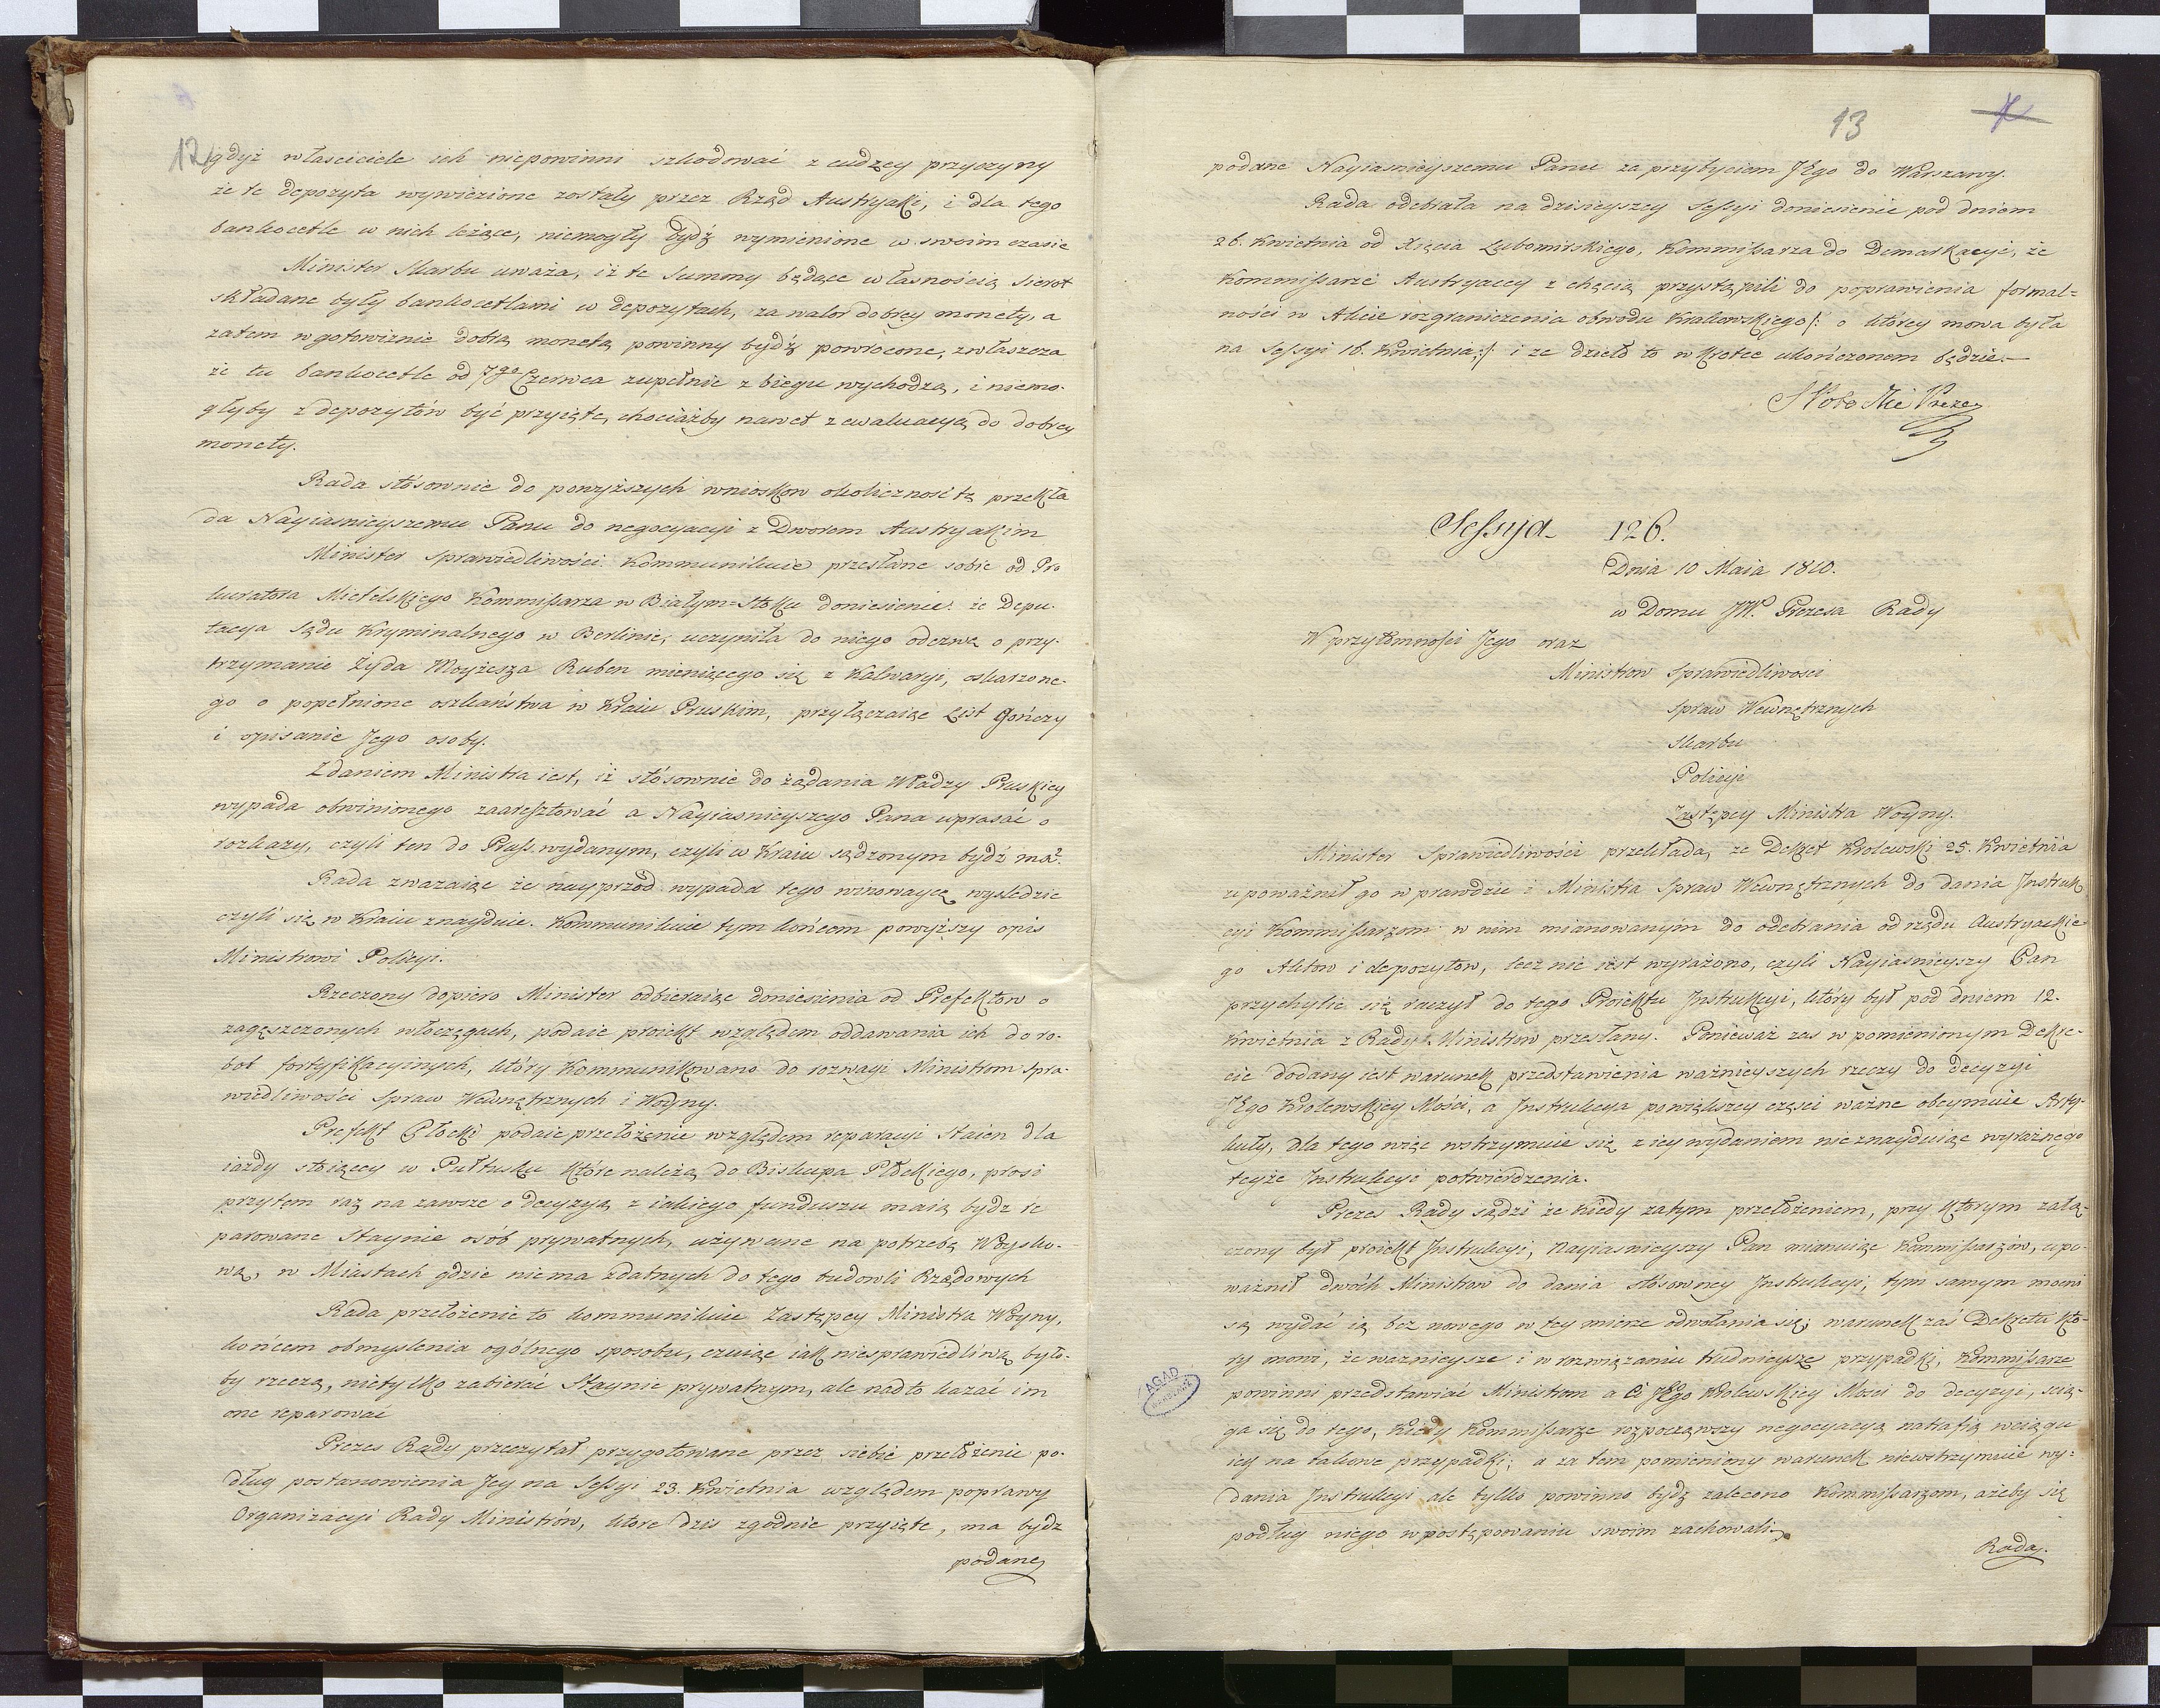 12
gdyż własciciele ich niepowinni szkodować z cudzey przyczyny
że te depozyta wywiezione zostały przez Rząd Austryaki, i dla tego
bankocetle w nich leżące, niemogły bydź wymienione w swoim czasie
Minister Skarbu uważa, iż te Summy będące własnością sierot
składane były bankocetlami w depozytach, za walor dobrey monety, a
zatem w gotowiznie dobrą monetą powinny bydź powrocone, zwłaszcza
że tu bankocetle od 7go Czerwca zupełnie z biegu wychodzą, i niemo-
głyby z depozytów być przyięte, chociażby nawet z ewaluacyą do dobrey
monety.
Rada stósownie do powyższych wniosków okoliczność tę przekła
da Nayiasnieyszemu Panu do negocyacyi z Dworem Austryakim
Minister Sprawiedliwości Kommunikuie przesłane sobie od Pro
kuratora Mietelskiego Kommissarza w Białym-Stoku doniesienie: że Depu-
tacya Sądu Kryminalnego w Berlinie, uczyniła do niego odezwę o przy-
trzymanie Żyda Moyżesza Ruben mieniącego się z Kalwaryi, oskarzone-
go o popełnione oszkaństwa w Kraiu Pruskim, przyłączaiąc List gończy
i opisanie Jego osoby.
Zdaniem Ministra iest, iż stósownie do żądania Władzy Pruskiey
wypada obwinionego zaaresztować a Nayiasnieyszego Pana uprasać o
rozkazy, czyli ten do Pruss wydanym, czyli w Kraiu sądzonym bydź ma?
Rada zwazaiąc że nayprzód wypada tego winowaycę wysledzić
czyli się w Kraiu znayduie. Kommunikuie tym końcem powyższy opis
Ministrowi Policyi.
Rzeczony dopiero Minister odbieraiąc doniesienia od Prefektow o
zagęszczonych włoczęgach, podaie proiekt względem oddawania ich do ro-
bot fortyfikacyinych, który Kommunikowano do rozwagi Ministrom Spra-
wiedliwości Spraw Wewnętrznych i Woyny.
Prefekt Płocki podaie przełożenie względem reparacyi Staien dla
iazdy stoiącey w Pułtusku które należą do Biskupa Płockiego, prosi
przytem raz na zawsze o decyzyą z iakiego funduszu maią bydz re
parowane Staynie osób prywatnych, używane na potrzebę Woysko-
wą, w Miastach gdzie niema zdatnych do tego budowli Rządowych
Rada przełożenie to kommunikuie Zastępcy Ministra Woyny,
końcem obmyslenia ogólnego sposobu, czuiąc iak niesprawiedliwą było-
by rzeczą, nietylko zabierać Staynie prywatnym, ale nadto kazać im
one reparować
Prezes Rady przeczytał przygotowane przez siebie przełożenie po-
dług postanowienia Jey na Sessyi 23. Kwietnia względem poprawy
Organizacyi Rady Ministrów, ktore dziś zgodnie przyięte, ma bydz
podane
13
podane Nayiasnieyszemu Panu za przybyciem JEgo do Warszawy.
Rada odebrała na dzisieyszey Sessyi doniesienie pod dniem
26. Kwietnia od Xięcia Lubomirskiego, Kommissarza do Demarkacyi, że
Kommissarze Austryaccy z chęcią przystąpili do poprawienia formal-
ności w Akcie rozgraniczenia obwodu Krakowskiego /: o którey mowa była
na Sessyi 16. Kwietnia :/ i ze dzieło to w krotce ukończonem będzie.—
Sessyja 126.
Dnia 10 Maia 1810.
w Domu JW. Prezesa Rady
W przytomności Jego oraz
Ministrow Sprawiedliwosci
Spraw Wewnętrznych
Skarbu
Policyi
Zastępcy Ministra Woyny.
Minister Sprawiedliwości przekłada, ze Dekret Krolewski 25. Kwietnia
upoważnił go w prawdzie i Ministra Spraw Wewnętrznych do dania Instruk
cyi Kommissarzom w nim mianowanym do odebrania od rządu Austryackie-
go Aktow i depozytow, lecz nie iest wyrażono, czyli Nayiasnieyszy Pan
przychylić się raczył do tego Proiektu Instrukcyi, który był pod dniem 12.
Kwietnia z Rady Ministrow przesłany. Ponieważ zas w pomienionym Dekre-
cie dodany iest warunek przedstawienia ważnieyszych rzeczy do decyzyi
JEgo Krolewskiey Mości, a Instrukcya powiększey części ważne obeymuie Arty-
kuły, dla tego więc wstrzymuie się z iey wydaniem nie znayduiąc wyraźnego
teyże Instrukcyi potwierdzenia.
Prezes Rady sądzi że kiedy zatym przełożeniem, przy którym załą-
czony był proiekt Instrukcyi, Nayiasnieyszy Pan mianuiąc Kommissarzów, upo-
ważnił dwóch Ministrow do dania stósowney Instrukcyi, tym samym mocni
są wydać ią bez nowego w tey mierze odwołania się; warunek zaś Dekretu kto-
ry mowi, że ważnieysze i w rozwiązaniu trudnieysze przypadki, Kommissarze
powinni przedstawiać Ministrom a Ci JEgo Krolewskiey Mosci do decyzyi, scią-
ga się do tego, kiedy Kommissarze rozpocząwszy negocyacyą natrafią w ciągu
iey na takowe przypadki; a za tem pomieniony warunek niewstrzymuie wy-
dania Instrukcyi ale tylko powinno bydź zalecono Kommissarzom, ażeby się
podług niego w postępowaniu swoim zachowali.
Rada.
AGAD